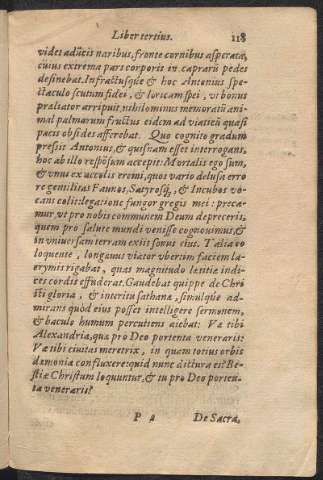 Liber tertius. 118
videt adūcis naribus, fronte cornibus asperata,
cuius extrema pars corporis in caprarū pedes
desinebat. Infractusq́ue & hoc Antonius spe-
ctaculo scutum fidei, & loricam spei, vt bonus
præliator arripuit, nihilominus memoratū ani-
mal palmarum fructus eidem ad viaticū quasi
pacis obsides afferebat. Quo cognito gradum
pressit Antonius, & quisnam esset interrogans,
hoc ab illo respōsum accepit: Mortalis ego sum,
& vnus ex accolis eremi, quos vario delusa erro
re gentilitas Faunos, Satyrosq́;, & Incubos vo-
cans colit: legatione fungor gregis mei: preca-
mur, vt pro nobis communem Deum depreceris:
quem pro salute mundi venisse cognouimus, &
in vniuersam terram exiit sonus eius. Talia eo
loquente, longæuus viator vbertim faciem la-
crymis rigabat, quas magnitudo lætitiæ indi-
ces cordis effuderat. Gaudebat quippe de Chri
sti gloria, & interitu sathanæ, simulq́ue ad-
mirans quòd eius posset intelligere sermonem,
& baculo humum percutiens aiebat: Væ tibi
Alexandria, quæ pro Deo portenta veneraris:
Væ tibi ciuitas meretrix, in quam totius orbis
dæmonia confluxere: quid nunc dictura es? Be-
stiæ Christum loquuntur, & tu pro Deo porten-
ta veneraris?
P 2 De Sacra,